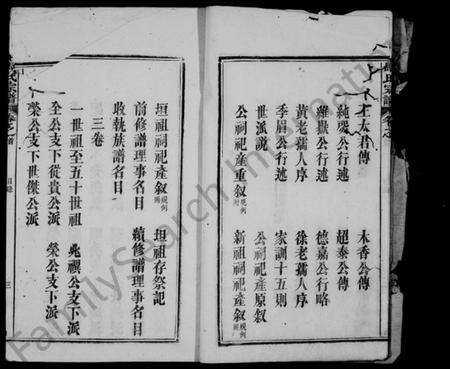 王太君傳　木香公傳
純翠公行述　超泰公傳
羅嶽公行述　德嘉公行略
黃老孺人序　徐老孺人序
季眉公行述　家訓十五則
世派說　公祠祀產原叙
公祠祀產重叙規例附　新祖祠祀產叙規例附
垣祖祠祀產叙規例附　垣祖存祭記
前修譜理事名目　續修譜理事名目
收執族譜名目
三卷
一世祖至五十世祖　兆禩公支下派
全公支下從貴公派　榮公支下派
榮公支下世傑公派
目錄
三
FamilySearch